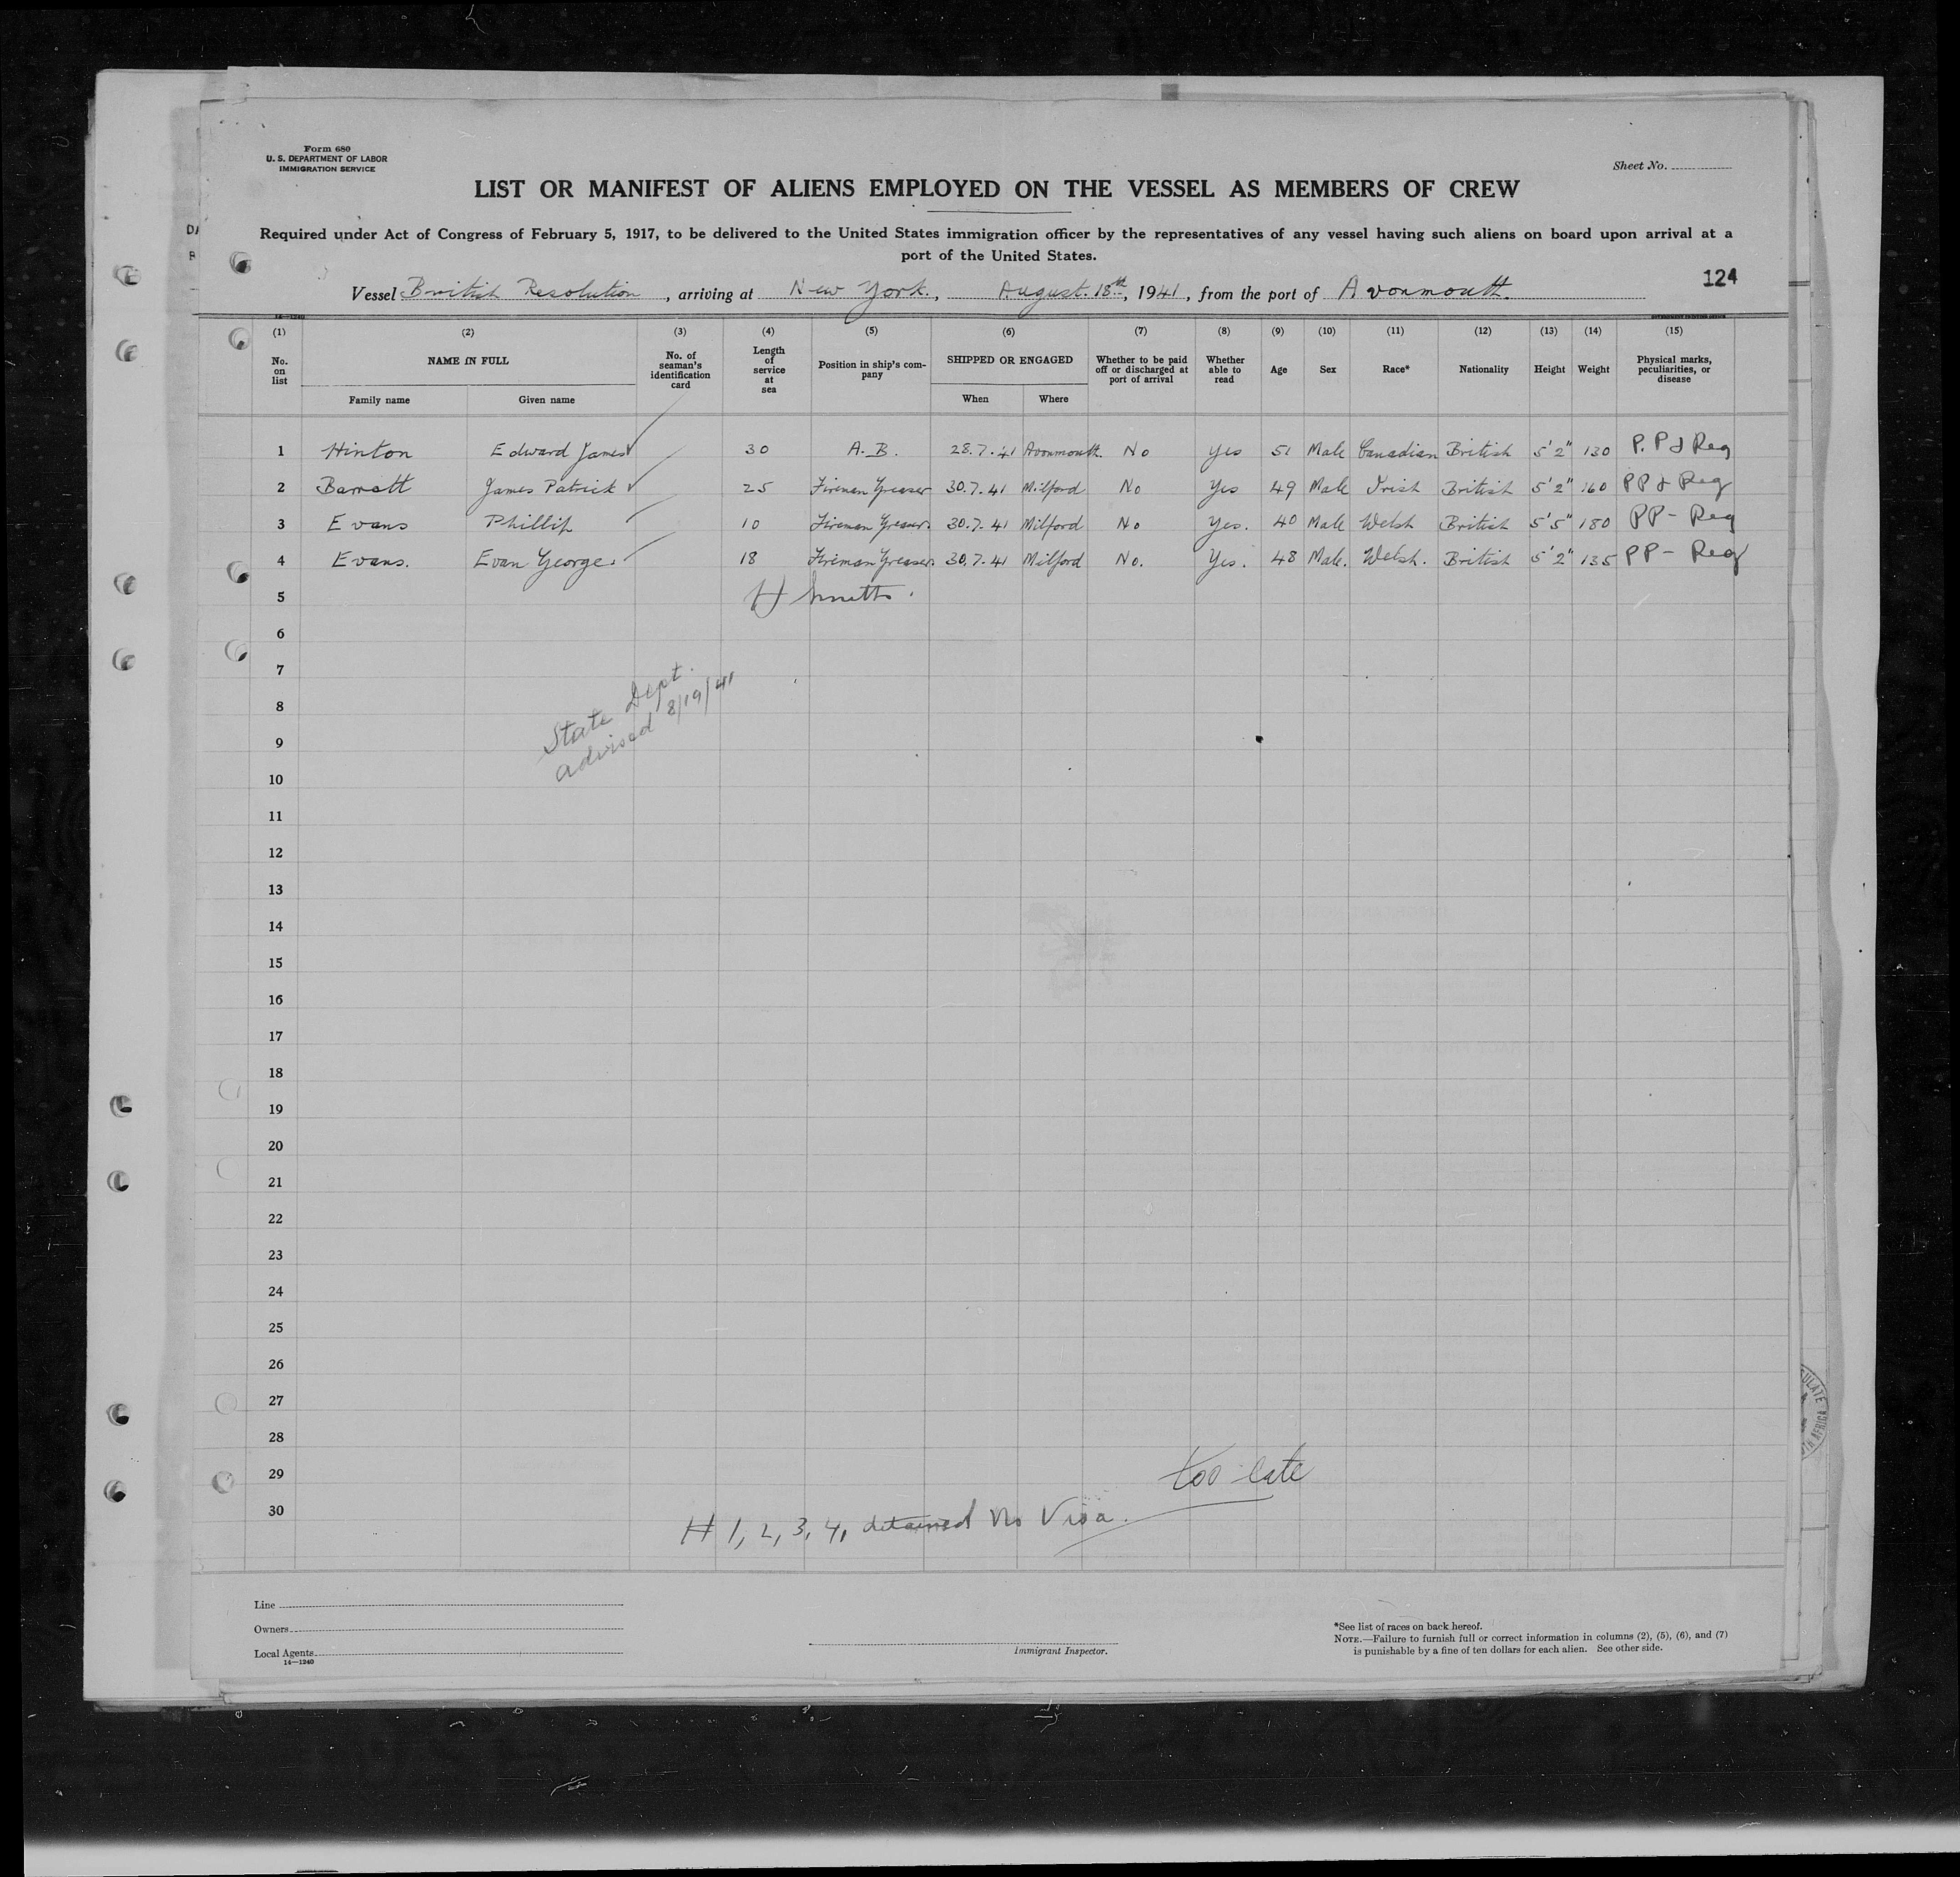 Form 680
U. S. DEPARTMENT OF LABOR
IMMIGRATION SERVICE
Sheet No.
LIST OR MANIFEST OF ALIENS EMPLOYED ON THE VESSEL AS MEMBERS OF CREW
Required under Act of Congress of February 5, 1917, to be delivered to the United States immigration officer by the representatives of any vessel having such aliens on board upon arrival at a
port of the United States.
124
Vessel British Resolution, arriving at New York., August. 18th, 1941, from the port of Avonmouth.
14—1240
(1) (2) (3) (4) (5) (6) (7) (8) (9) (10) (11) (12) (13) (14) (15)
No. on list NAME IN FULL No. of seaman's identification card Length of service at sea Position in ship's company SHIPPED OR ENGAGED Whether to be paid off or discharged at port of arrival Whether able to read Age Sex Race* Nationality Height Weight Physical marks, peculiarities, or disease
Family name Given name When Where
1 Hinton Edward James 30 A.B. 28.7.41 Avonmouth. No Yes 51 Male Canadian British 5'2" 130 P.P & Reg
2 Barratt James Patrick 25 Fireman Greaser 30.7.41 Milford No Yes 49 Male Irish British 5'2" 160 PP & Reg
3 Evans Phillip 10 Fireman Greaser. 30.7.41 Milford No Yes. 40 Male Welsh British 5'5" 180 PP - Reg
4 Evans. Evan George. 18 Fireman Greaser. 30.7.41 Milford No. Yes. 48 Male. Welsh. British 5'2" 135 PP - Reg
5
6
7
State Dept.
8
advised 8/19/41
9
10
11
12
13
14
15
16
17
18
19
20
21
22
23
24
25
26
27
28
29
too late
30
# 1, 2, 3, 4, detained No Visa.
Line
Owners
Local Agents
14—1240
Immigrant Inspector.
*See list of races on back hereof.
NOTE.—Failure to furnish full or correct information in columns (2), (5), (6), and (7)
is punishable by a fine of ten dollars for each alien. See other side.